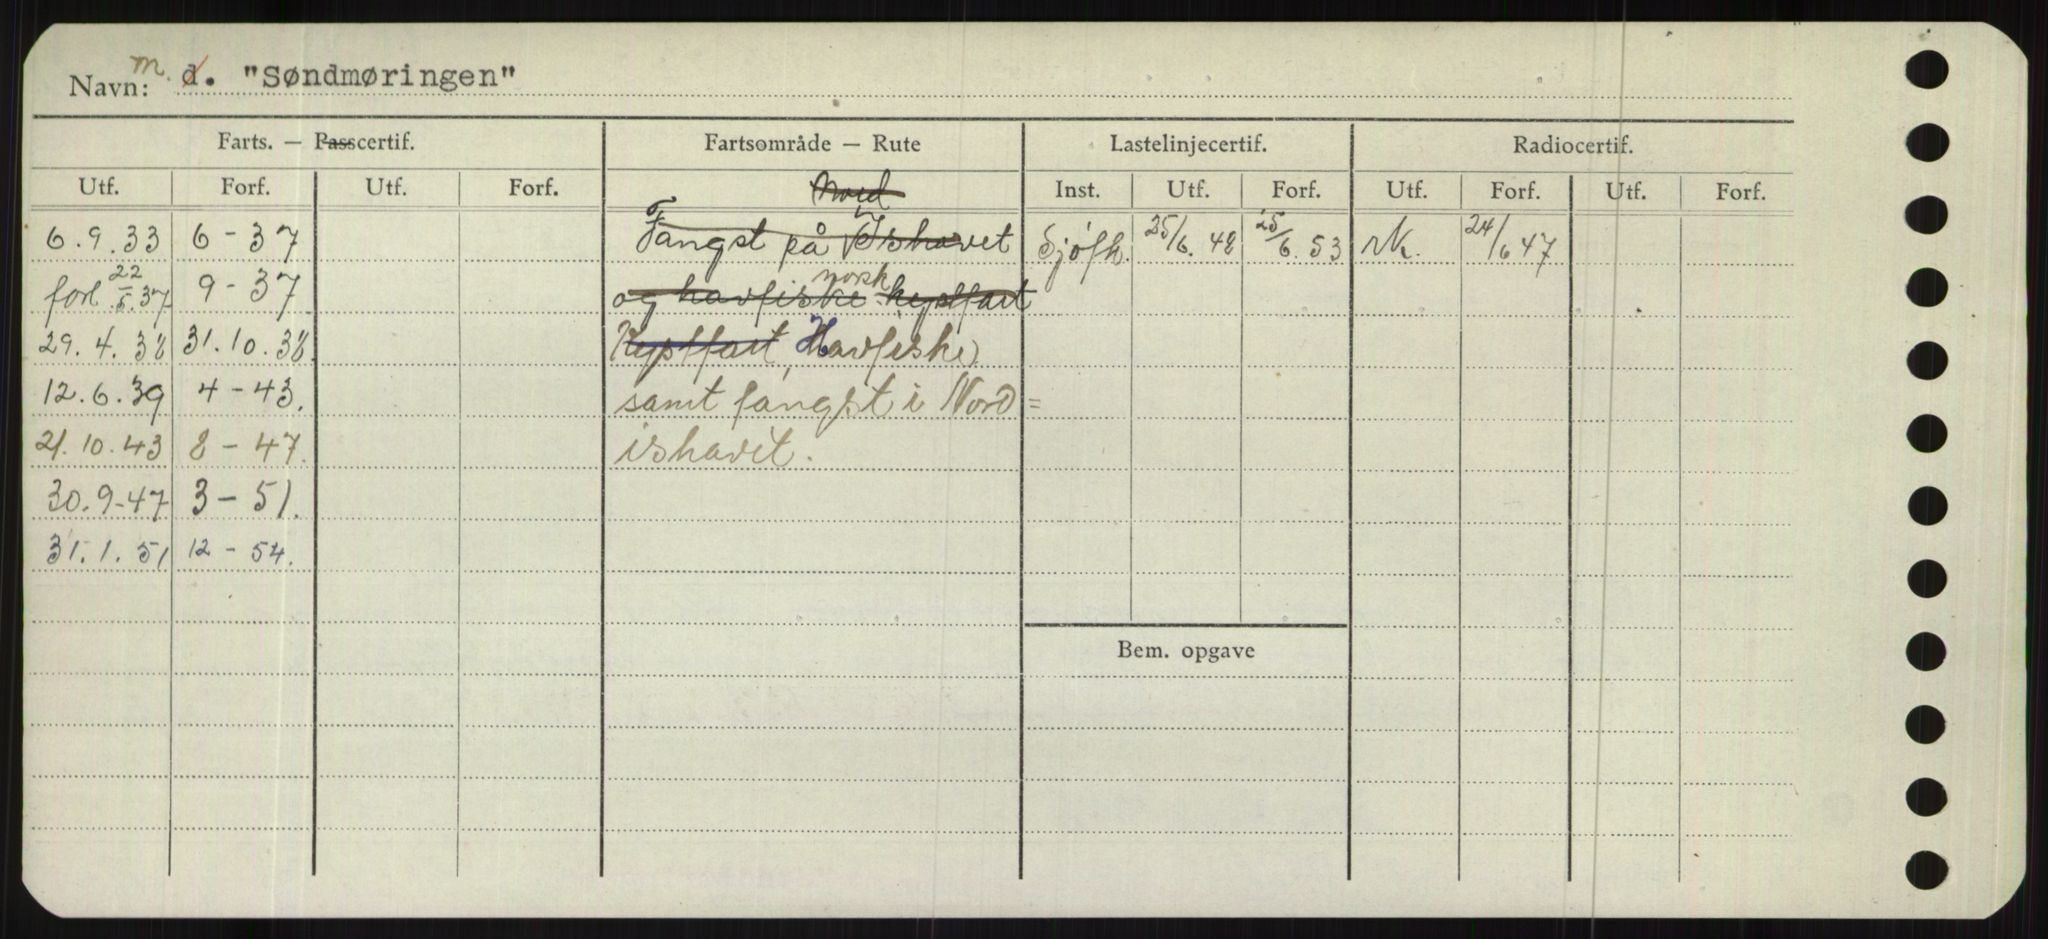 Navn: m. d. "Søndmøringen"
Farts. — Passcertif. Fartsområde — Rute Lastelinjecertif. Radiocertif.
Utf. Forf. Utf. Forf. Nord Inst. Utf. Forf. Utf. Forf. Utf. Forf.
6.9.33 6-37 Fangst på Ishavet Sjøfk. 25/6.48 25/6.53 24/6 47
forl 22/5.37 9-37 og havfiske norsk kystfart
29.4.38 31.10.38 Kystfart, Havfiske
12.6.39 4-43. samt fangst i Nord=
21.10.43 8-47. ishavet.
30.9-47 3-51.
31.1.51 12-54.
Bem. opgave